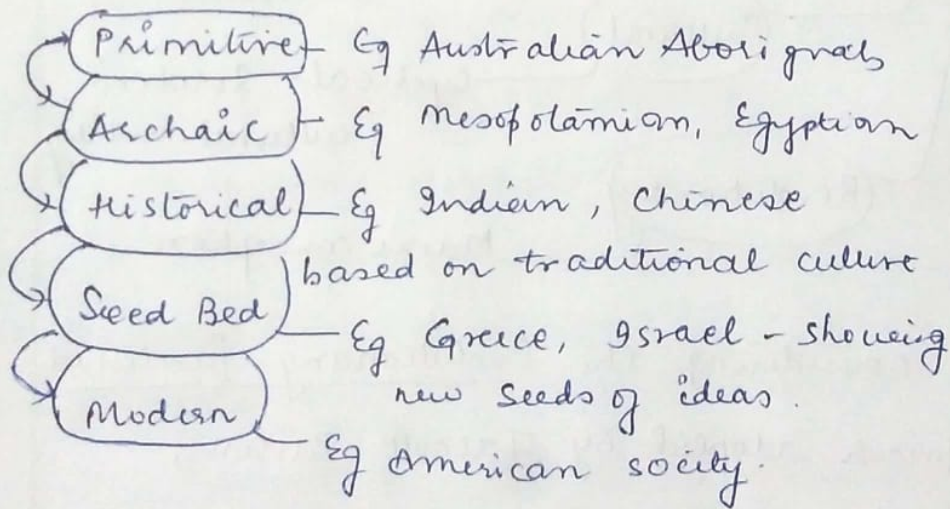 Primitive - Eg Australian Aborignals
Archaic - Eg Mesopotamian, Egyptian
Historical - Eg Indian, Chinese
based on traditional culture
Seed Bed
- Eg Greece, Israel - showing
new seeds of ideas.
Modern
- Eg American socity.